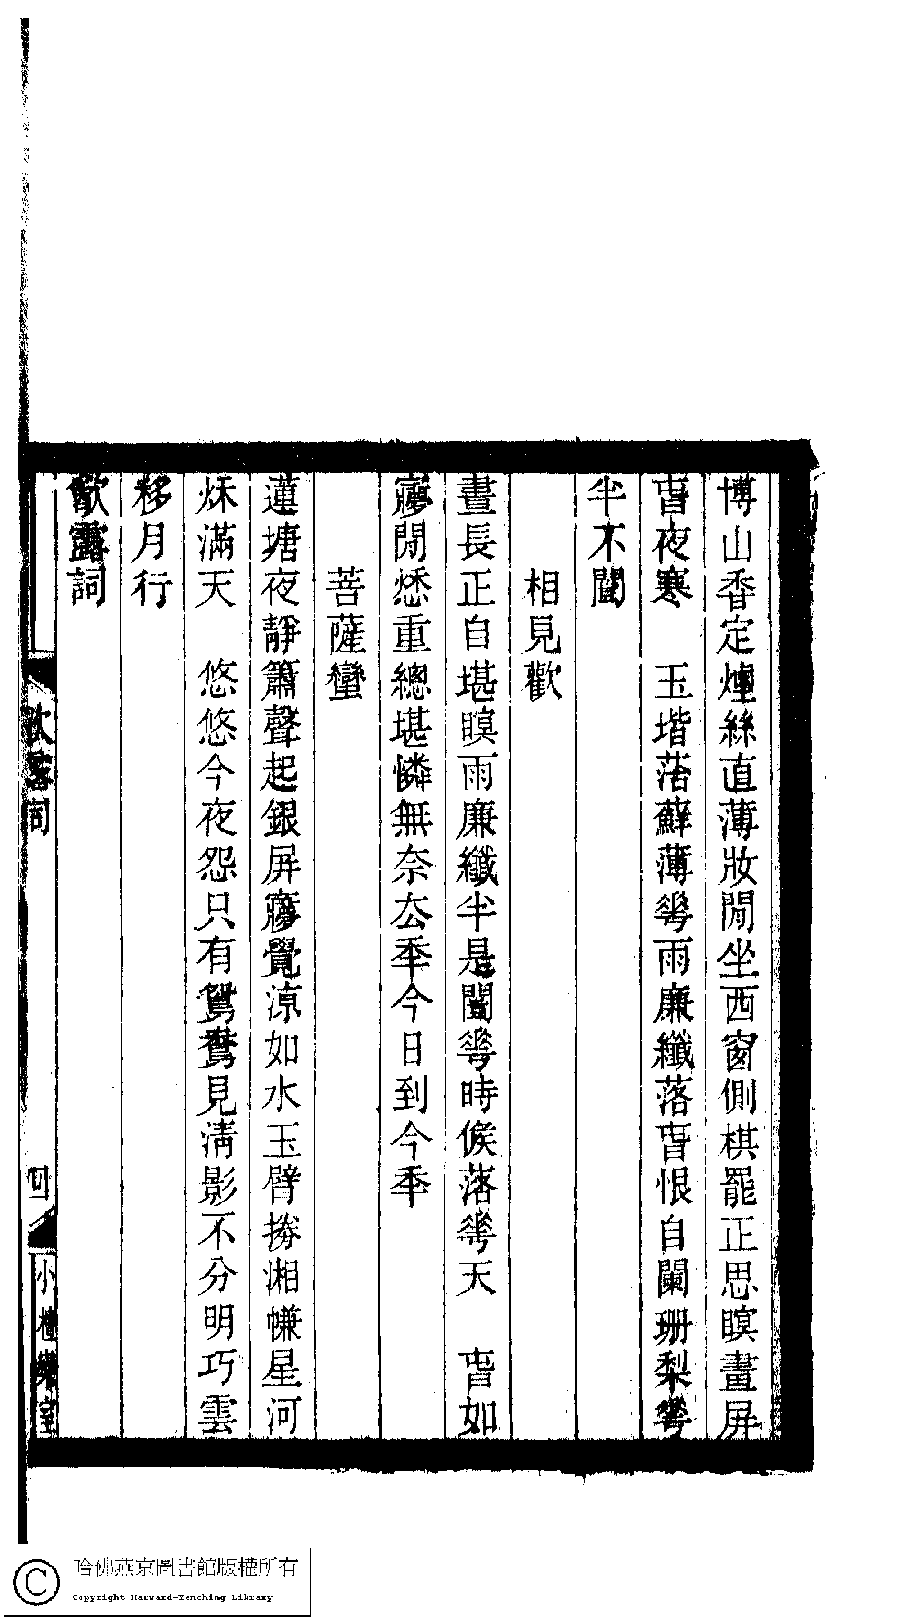 博山香定煙絲直薄妝閒坐西窗側棋罷正思瞑畫屏
旾夜寒　玉堦落蘚薄琹雨廉纖落旾恨自闌珊梨琹
半不闔
相見歡
晝長正自堪瞑雨廉纖半是闔琹時候落琹天　旾如
㝱閒恁重總堪憐無奈厺秊今日到今秊
菩薩蠻
蓮塘夜靜簫聲起銀屏㝱覺涼如水玉臂掩湘㡘星河
秌滿天　悠悠今夜怨只有鴛鴦見淸影不分明巧雲
移月行
飮露詞
飮露詞
四
小檀欒室
哈佛燕京圖書館版權所有
Copyright Harvard-Yenching Library